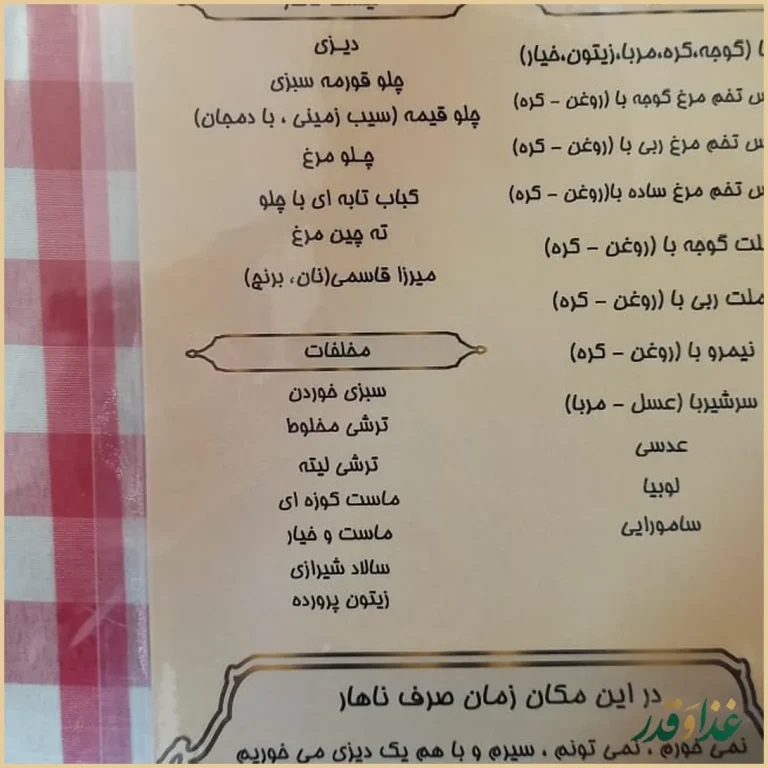 (گوجه،کره،مربا،زیتون،خیار)
تخم مرغ گوجه با (روغن - کره)
تخم مرغ ربی با (روغن - کره)
تخم مرغ ساده با(روغن - کره)
گوجه با (روغن - کره)
ربی با (روغن - کره)
نیمرو با (روغن - کره)
سرشیربا (عسل - مربا)
عدسی
لوبیا
سامورایی
دیـزی
چلو قورمه سبزی
چلو قیمه (سیب زمینی ، با دمجان)
چـلو مرغ
کباب تابه ای با چلو
ته چین مرغ
میرزا قاسمی(نان، برنج)
مخلفات
سبزی خوردن
ترشی مخلوط
ترشی لیته
ماست کوزه ای
ماست و خیار
سالاد شیرازی
زیتون پرورده
در این مکان زمان صرف ناهار
نمی خورم ، نمی تونم ، سیرم و با هم یک دیزی می خوریم
غذا و قدر